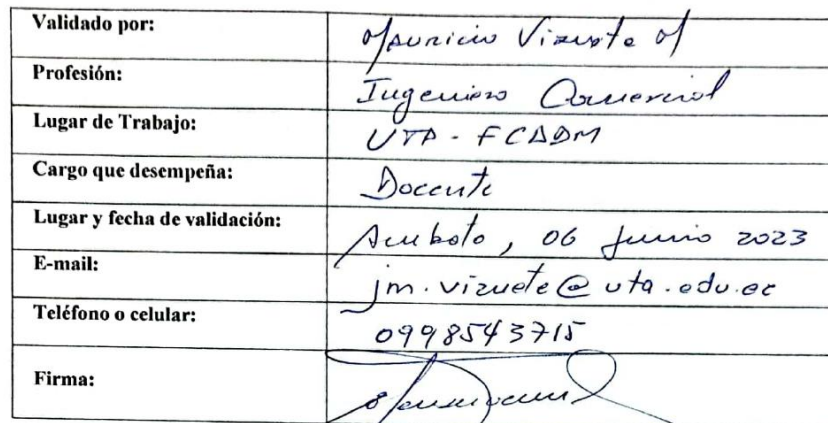 Validado por: Mauricio Vizuete M
Profesión: Ingeniero Comercial
Lugar de Trabajo: UTA - FCADM
Cargo que desempeña: Docente
Lugar y fecha de validación: Ambato, 06 junio 2023
E-mail: jm.vizuete@uta.edu.ec
Teléfono o celular: 0998543715
Firma: